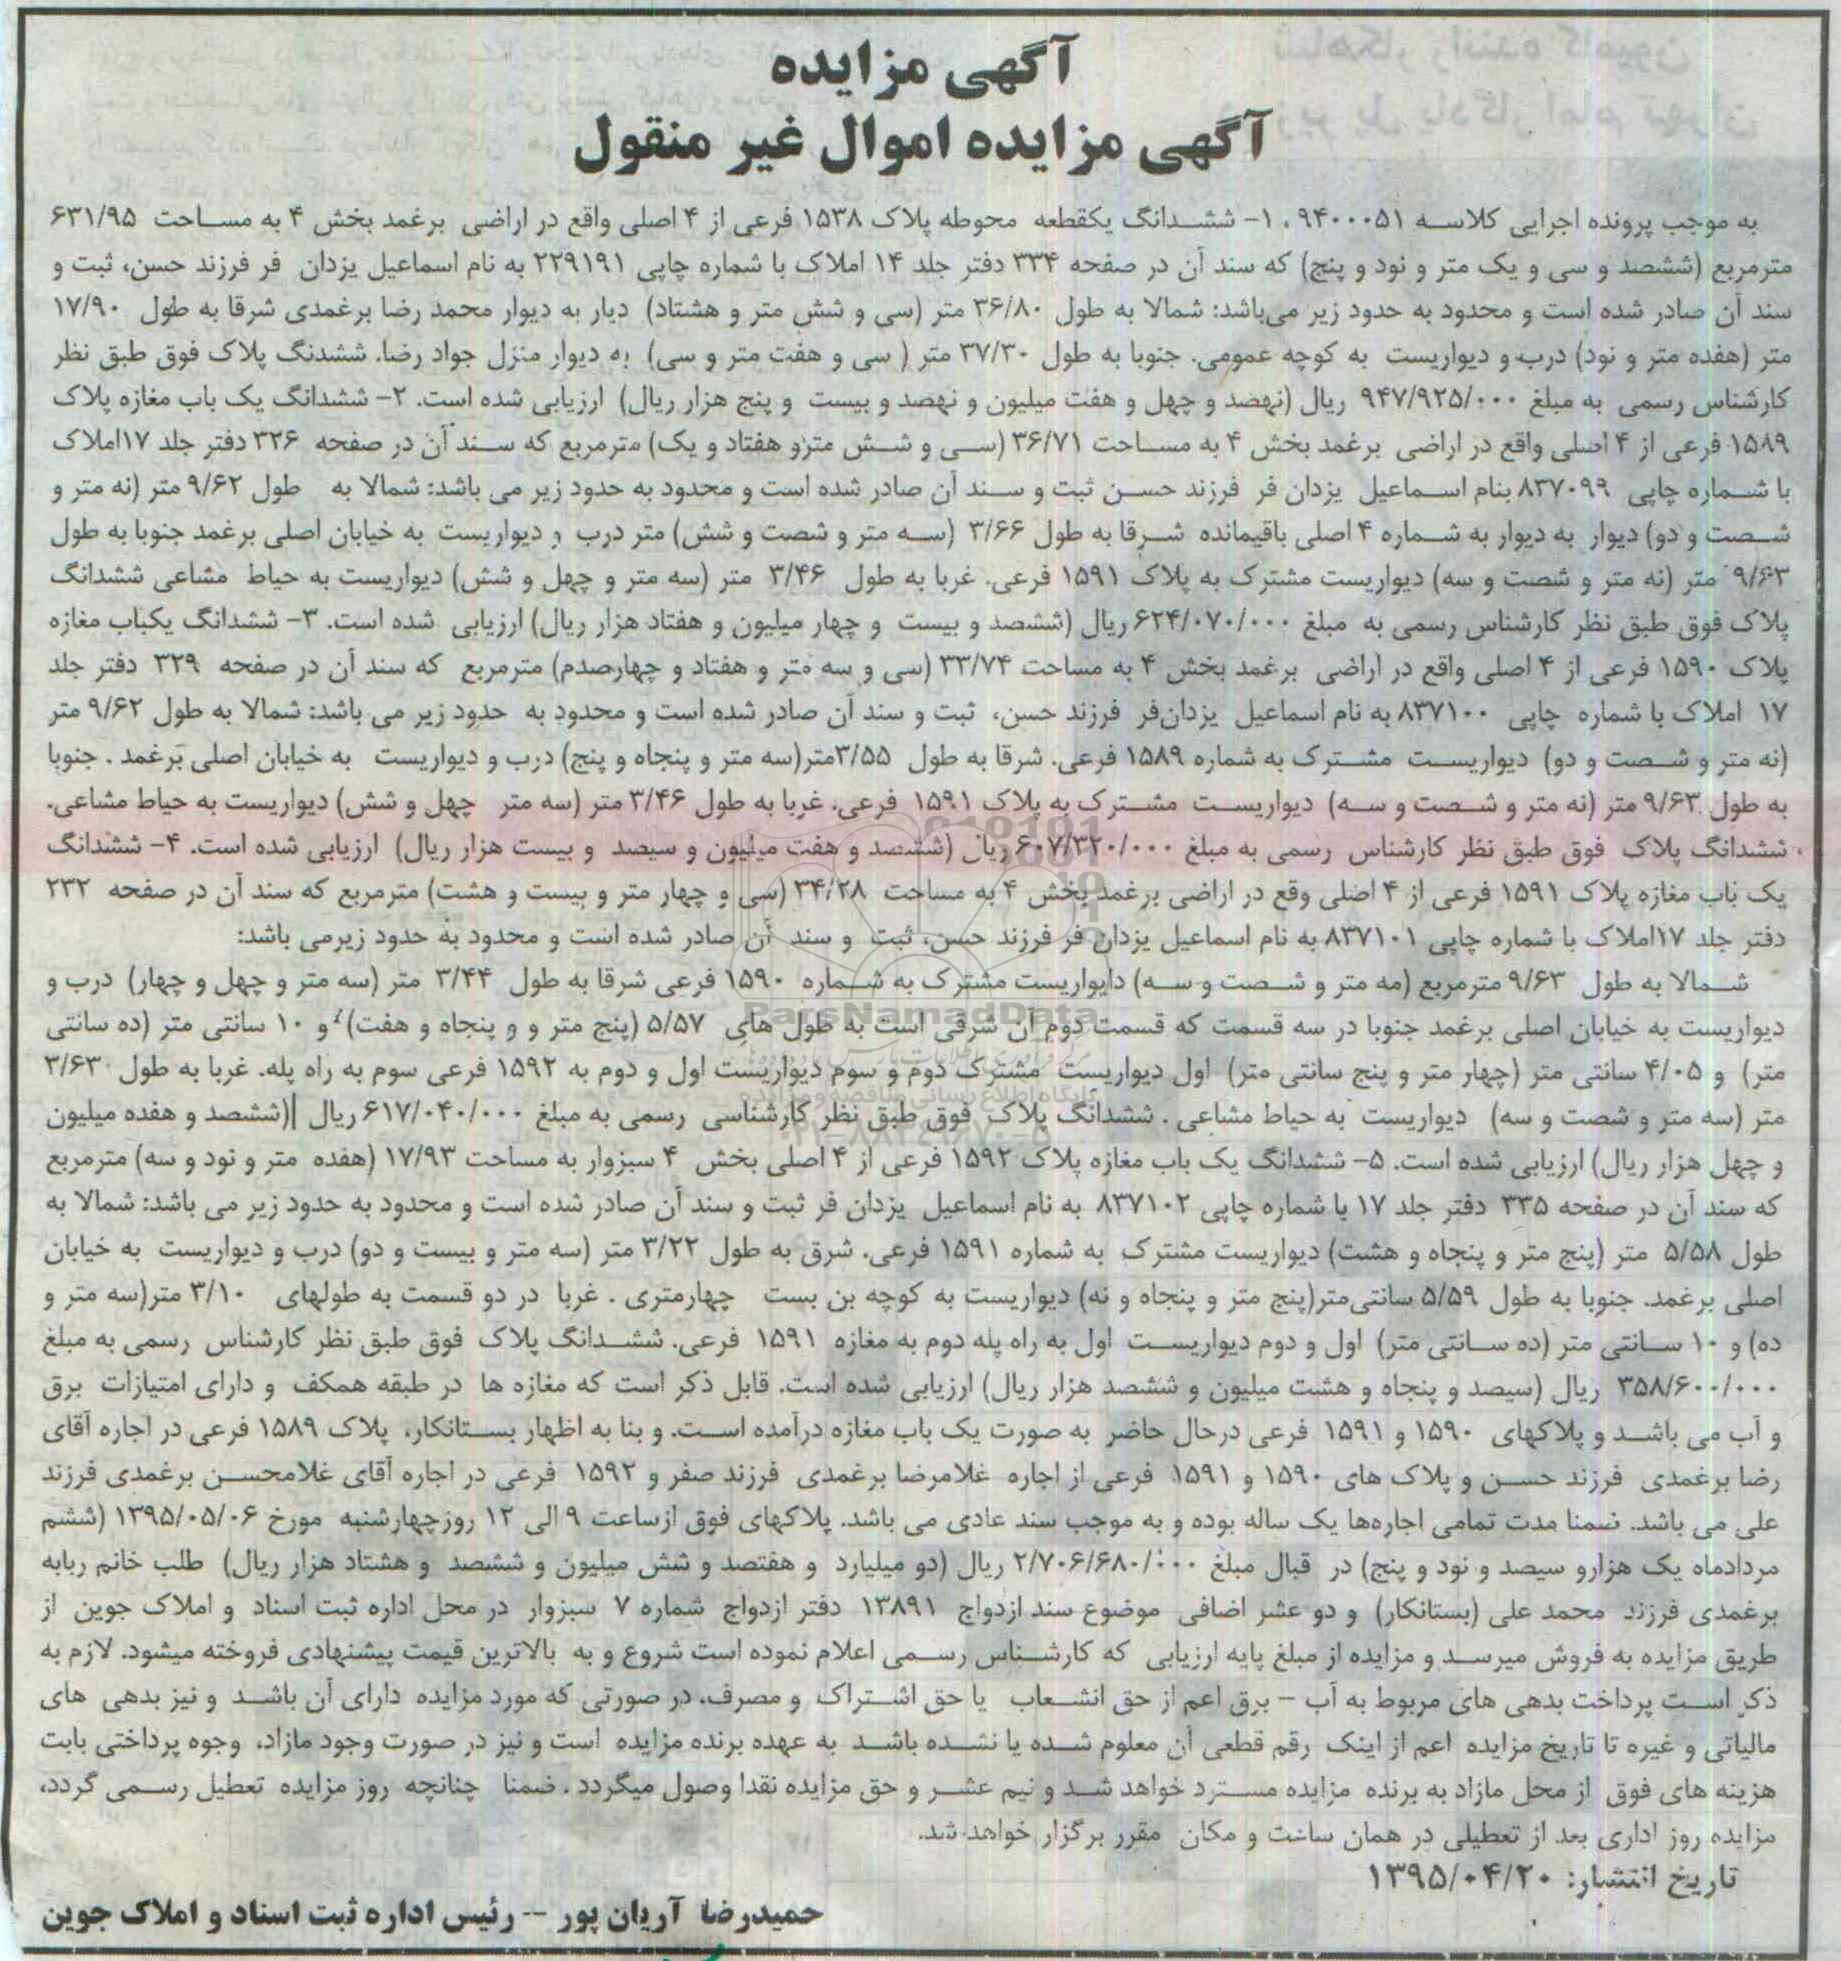 آگهی مزایده
آگهی مزایده اموال غیر منقول
به موجب پرونده اجرایی کلاسه ۹۴۰۰۰۵۱ ، ۱- ششدانگ یکقطعه محوطه پلاک ۱۵۳۸ فرعی از ۴ اصلی واقع در اراضی برغمد بخش ۴ به مساحت ۶۳۱/۹۵
مترمربع (ششصد و سی و یک متر و نود و پنج) که سند آن در صفحه ۳۳۴ دفتر جلد ۱۴ املاک با شماره چاپی ۲۲۹۱۹۱ به نام اسماعیل یزدان فر فرزند حسن، ثبت و
سند آن صادر شده است و محدود به حدود زیر می‌باشد: شمالا به طول ۳۶/۸۰ متر (سی و شش متر و هشتاد) دیار به دیوار محمد رضا برغمدی شرقا به طول ۱۷/۹۰
متر (هفده متر و نود) درب و دیواریست به کوچه عمومی. جنوبا به طول ۳۷/۳۰ متر ( سی و هفت متر و سی) به دیوار منزل جواد رضا. ششدنگ پلاک فوق طبق نظر
کارشناس رسمی به مبلغ ۹۴۷/۹۲۵/۰۰۰ ریال (نهصد و چهل و هفت میلیون و نهصد و بیست و پنج هزار ریال) ارزیابی شده است. ۲- ششدانگ یک باب مغازه پلاک
۱۵۸۹ فرعی از ۴ اصلی واقع در اراضی برغمد بخش ۴ به مساحت ۳۶/۷۱ (سی و شش مترو هفتاد و یک) مترمربع که سند آن در صفحه ۳۲۶ دفتر جلد ۱۷املاک
با شماره چاپی ۸۳۷۰۹۹ بنام اسماعیل یزدان فر فرزند حسن ثبت و سند آن صادر شده است و محدود به حدود زیر می باشد: شمالا به طول ۹/۶۲ متر (نه متر و
شصت و دو) دیوار به دیوار به شماره ۴ اصلی باقیمانده شرقا به طول ۳/۶۶ (سه متر و شصت و شش) متر درب و دیواریست به خیابان اصلی برغمد جنوبا به طول
۹/۶۳ متر (نه متر و شصت و سه) دیواریست مشترک به پلاک ۱۵۹۱ فرعی. غربا به طول ۳/۴۶ متر (سه متر و چهل و شش) دیواریست به حیاط مشاعی ششدانگ
پلاک فوق طبق نظر کارشناس رسمی به مبلغ ۶۲۴/۰۷۰/۰۰۰ ریال (ششصد و بیست و چهار میلیون و هفتاد هزار ریال) ارزیابی شده است. ۳- ششدانگ یکباب مغازه
پلاک ۱۵۹۰ فرعی از ۴ اصلی واقع در اراضی برغمد بخش ۴ به مساحت ۳۳/۷۴ (سی و سه متر و هفتاد و چهارصدم) مترمربع که سند آن در صفحه ۳۲۹ دفتر جلد
۱۷ املاک با شماره چاپی ۸۳۷۱۰۰ به نام اسماعیل یزدان‌فر فرزند حسن، ثبت و سند آن صادر شده است و محدود به حدود زیر می باشد: شمالا به طول ۹/۶۲ متر
(نه متر و شصت و دو) دیواریست مشترک به شماره ۱۵۸۹ فرعی. شرقا به طول ۳/۵۵متر(سه متر و پنجاه و پنج) درب و دیواریست به خیابان اصلی برغمد . جنوبا
به طول ۹/۶۳ متر (نه متر و شصت و سه) دیواریست مشترک به پلاک ۱۵۹۱ فرعی. غربا به طول ۳/۴۶ متر (سه متر چهل و شش) دیواریست به حیاط مشاعی.
ششدانگ پلاک فوق طبق نظر کارشناس رسمی به مبلغ ۶۰۷/۳۲۰/۰۰۰ ریال (ششصد و هفت میلیون و سیصد و بیست هزار ریال) ارزیابی شده است. ۴- ششدانگ
یک باب مغازه پلاک ۱۵۹۱ فرعی از ۴ اصلی وقع در اراضی برغمد بخش ۴ به مساحت ۳۴/۲۸ (سی و چهار متر و بیست و هشت) مترمربع که سند آن در صفحه ۲۳۲
دفتر جلد ۱۷املاک با شماره چاپی ۸۳۷۱۰۱ به نام اسماعیل یزدان فر فرزند حسن، ثبت و سند آن صادر شده است و محدود به حدود زیرمی باشد:
شمالا به طول ۹/۶۳ مترمربع (مه متر و شصت و سه) دایواریست مشترک به شماره ۱۵۹۰ فرعی شرقا به طول ۳/۴۴ متر (سه متر و چهل و چهار) درب و
دیواریست به خیابان اصلی برغمد جنوبا در سه قسمت که قسمت دوم آن شرقی است به طول های ۵/۵۷ (پنج متر و و پنجاه و هفت) و ۱۰ سانتی متر (ده سانتی
متر) و ۴/۰۵ سانتی متر (چهار متر و پنج سانتی متر) اول دیواریست مشترک دوم و سوم دیواریست اول و دوم به ۱۵۹۲ فرعی سوم به راه پله. غربا به طول ۳/۶۳
متر (سه متر و شصت و سه) دیواریست به حیاط مشاعی . ششدانگ پلاک فوق طبق نظر کارشناسی رسمی به مبلغ ۶۱۷/۰۴۰/۰۰۰ ریال (ششصد و هفده میلیون
و چهل هزار ریال) ارزیابی شده است. ۵- ششدانگ یک باب مغازه پلاک ۱۵۹۲ فرعی از ۴ اصلی بخش ۴ سبزوار به مساحت ۱۷/۹۳ (هفده متر و نود و سه) مترمربع
که سند آن در صفحه ۳۳۵ دفتر جلد ۱۷ با شماره چاپی ۸۳۷۱۰۲ به نام اسماعیل یزدان فر ثبت و سند آن صادر شده است و محدود به حدود زیر می باشد: شمالا به
طول ۵/۵۸ متر (پنج متر و پنجاه و هشت) دیواریست مشترک به شماره ۱۵۹۱ فرعی. شرق به طول ۳/۲۲ متر (سه متر و بیست و دو) درب و دیواریست به خیابان
اصلی برغمد. جنوبا به طول ۵/۵۹ سانتی‌متر(پنج متر و پنجاه و نه) دیواریست به کوچه بن بست چهارمتری . غربا در دو قسمت به طولهای ۳/۱۰ متر(سه متر و
ده) و ۱۰ سانتی متر (ده سانتی متر) اول و دوم دیواریست اول به راه پله دوم به مغازه ۱۵۹۱ فرعی. ششدانگ پلاک فوق طبق نظر کارشناس رسمی به مبلغ
۳۵۸/۶۰۰/۰۰۰ ریال (سیصد و پنجاه و هشت میلیون و ششصد هزار ریال) ارزیابی شده است. قابل ذکر است که مغازه ها در طبقه همکف و دارای امتیازات برق
و آب می باشد و پلاکهای ۱۵۹۰ و ۱۵۹۱ فرعی درحال حاضر به صورت یک باب مغازه درآمده است. و بنا به اظهار بستانکار، پلاک ۱۵۸۹ فرعی در اجاره آقای
رضا برغمدی فرزند حسن و پلاک های ۱۵۹۰ و ۱۵۹۱ فرعی از اجاره غلامرضا برغمدی فرزند صفر و ۱۵۹۲ فرعی در اجاره آقای غلامحسن برغمدی فرزند
علی می باشد. ضمنا مدت تمامی اجاره‌ها یک ساله بوده و به موجب سند عادی می باشد. پلاکهای فوق ازساعت ۹ الی ۱۲ روزچهارشنبه مورخ ۱۳۹۵/۰۵/۰۶ (ششم
مردادماه یک هزارو سیصد و نود و پنج) در قبال مبلغ ۲/۷۰۶/۶۸۰/۰۰۰ ریال (دو میلیارد و هفتصد و شش میلیون و ششصد و هشتاد هزار ریال) طلب خانم ربابه
برغمدی فرزند محمد علی (بستانکار) و دو عشر اضافی موضوع سند ازدواج ۱۳۸۹۱ دفتر ازدواج شماره ۷ سبزوار در محل اداره ثبت اسناد و املاک جوین از
طریق مزایده به فروش میرسد و مزایده از مبلغ پایه ارزیابی که کارشناس رسمی اعلام نموده است شروع و به بالاترین قیمت پیشنهادی فروخته میشود. لازم به
ذکر است پرداخت بدهی های مربوط به آب - برق اعم از حق انشعاب یا حق اشتراک و مصرف، در صورتی که مورد مزایده دارای آن باشد و نیز بدهی های
مالیاتی و غیره تا تاریخ مزایده اعم از اینک رقم قطعی آن معلوم شده یا نشده باشد به عهده برنده مزایده است و نیز در صورت وجود مازاد، وجوه پرداختی بابت
هزینه های فوق از محل مازاد به برنده مزایده مسترد خواهد شد و نیم عشر و حق مزایده نقدا وصول میگردد . ضمنا چنانچه روز مزایده تعطیل رسمی گردد،
مزایده روز اداری بعد از تعطیلی در همان ساعت و مکان مقرر برگزار خواهد شد.
تاریخ انتشار: ۱۳۹۵/۰۴/۲۰
حمیدرضا آریان پور -- رئیس اداره ثبت اسناد و املاک جوین
ParsNamadData
پایگاه اطلاع رسانی مناقصه و مزایده
۰۲۱-۸۸۳۴۹۶۷۰-۵